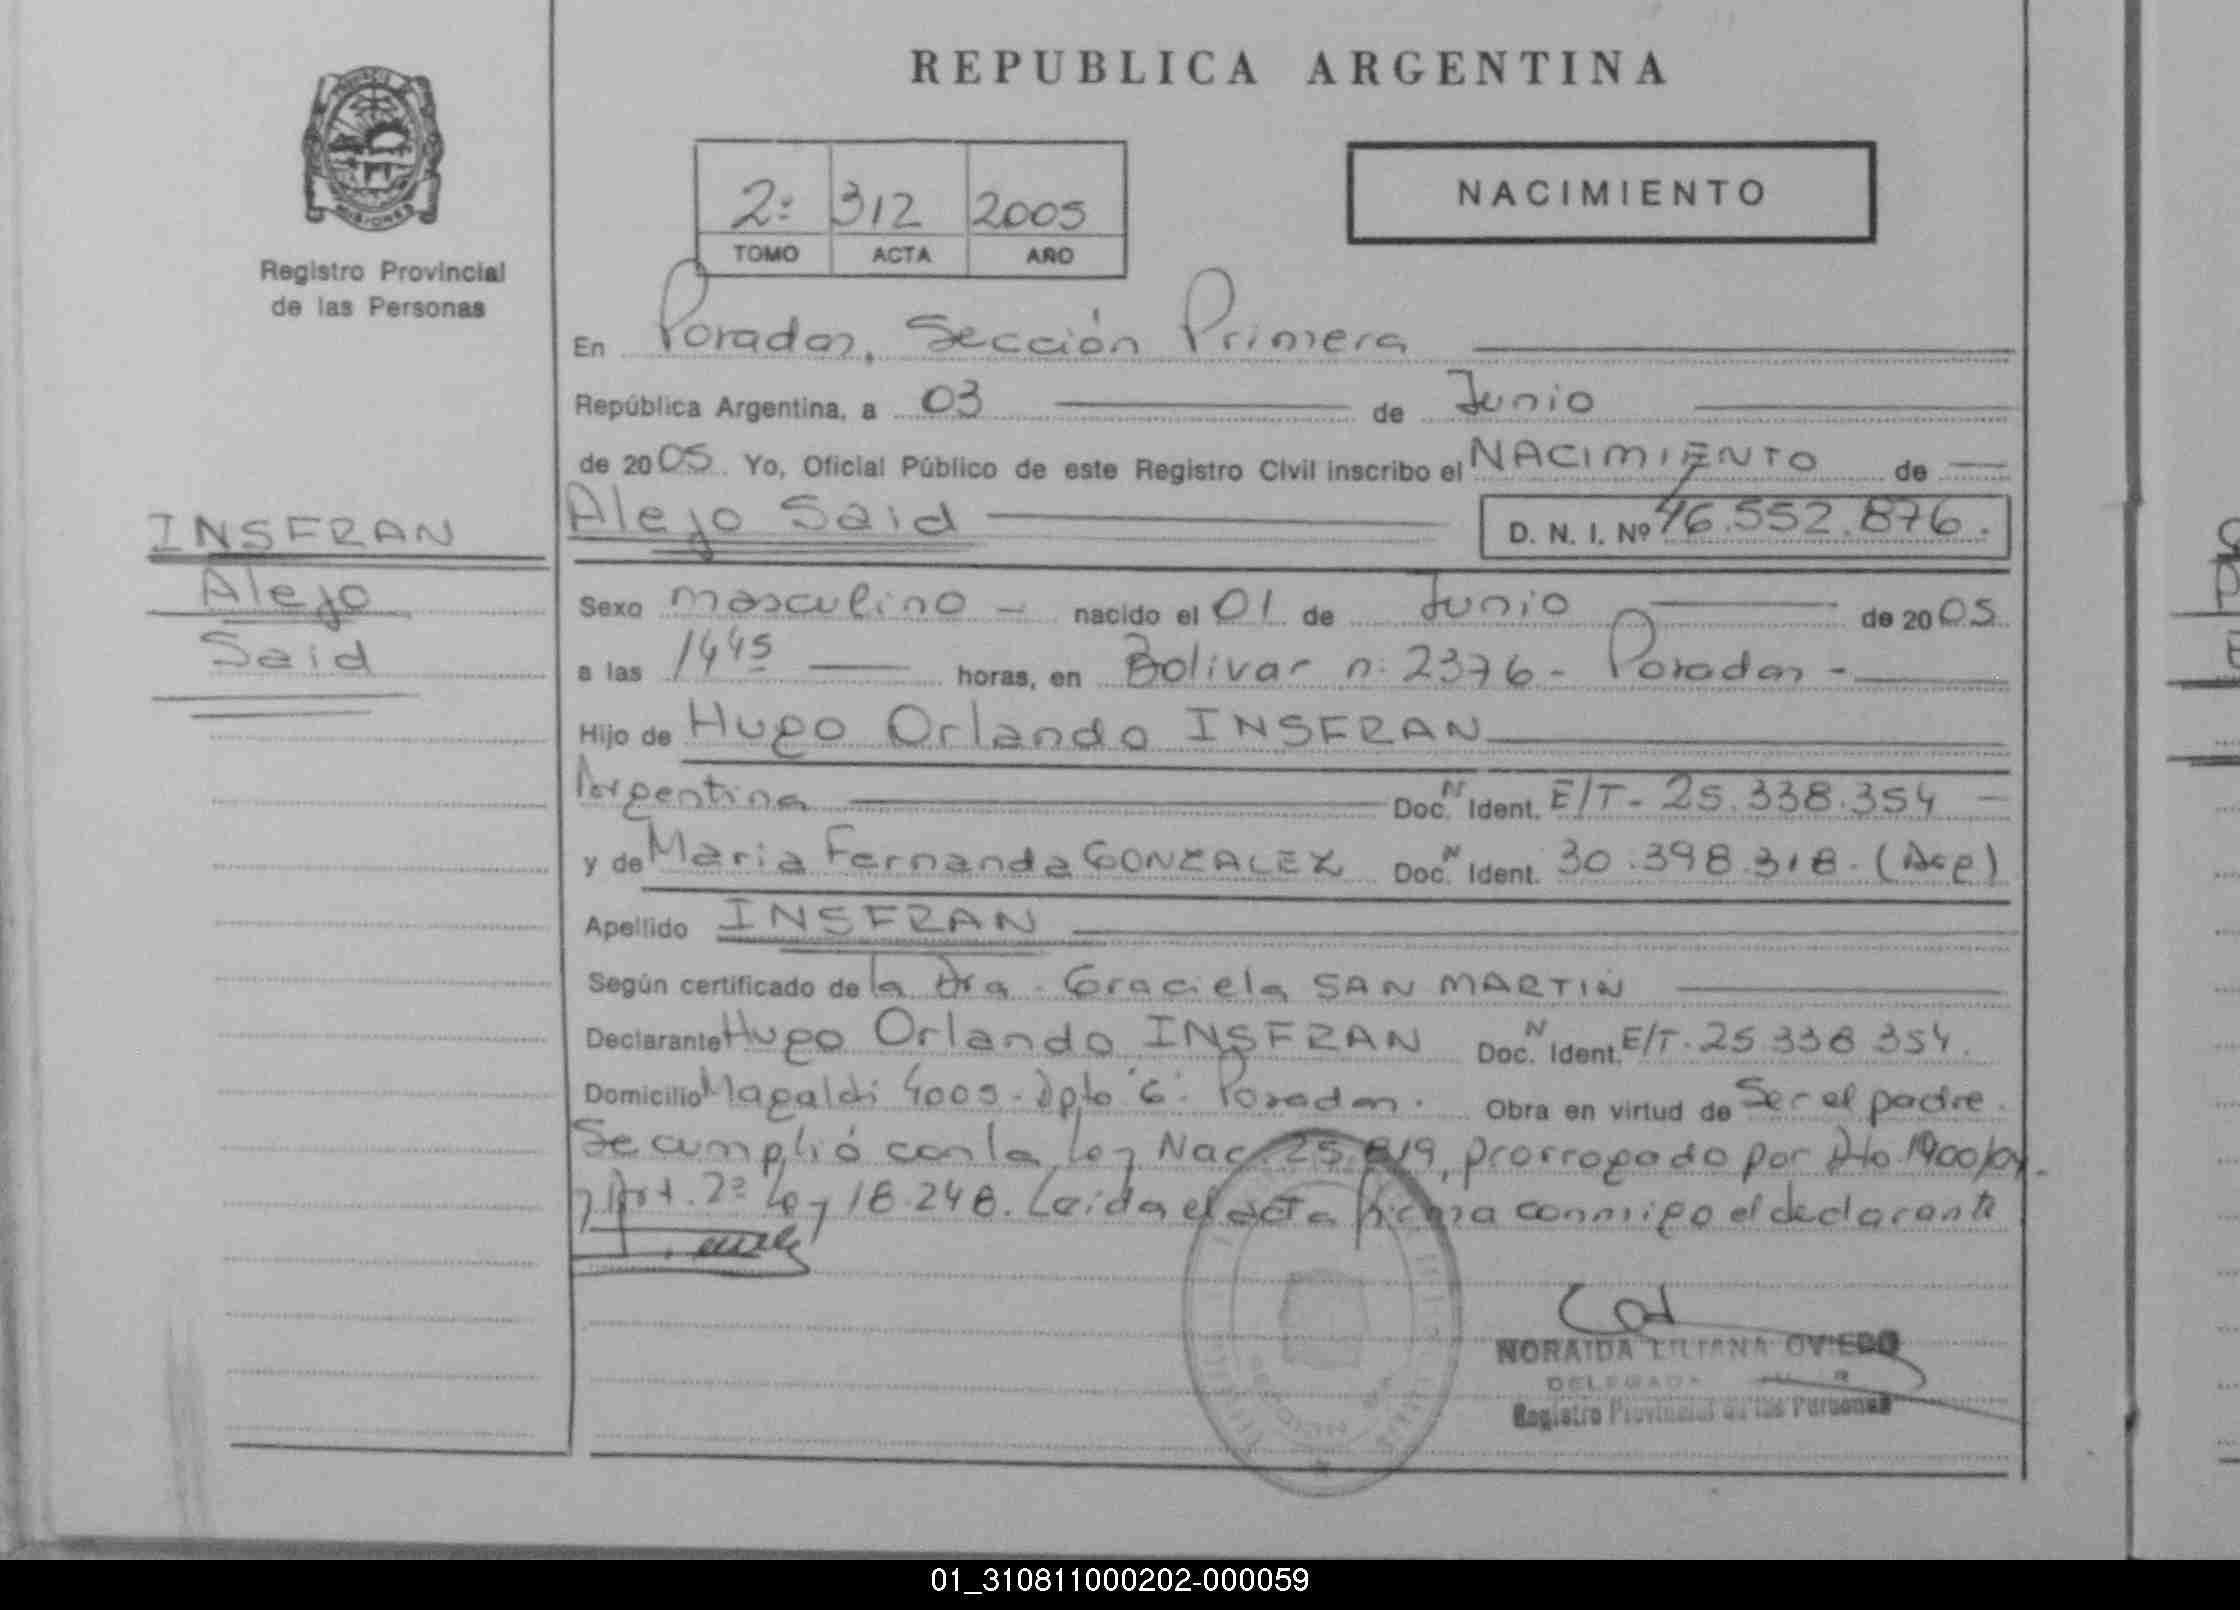 REPUBLICA ARGENTINA
2º 312 2005
TOMO ACTA AÑO
NACIMIENTO
MISIONES
Registro Provincial
de las Personas
En Posadas, Sección Primera
República Argentina, a 03 de Junio
de 2005 Yo, Oficial Público de este Registro Civil inscribo el NACIMIENTO de
Alejo Said D. N. I. Nº 46.552.876.
INSFRAN
Alejo
Said
Sexo masculino - nacido el 01 de Junio de 2005
a las 1445 horas, en Bolivar nº 2376 - Posadas -
Hijo de Hugo Orlando INSFRAN
Argentina Doc. N Ident. E/T - 25.338.354
y de Maria Fernanda GONZALEZ Doc. N Ident. 30.398.318. (Arg)
Apellido INSFRAN
Según certificado de la Dra. Graciela SAN MARTIN
Declarante Hugo Orlando INSFRAN Doc. N Ident. E/T. 25 338 354.
Domicilio Magaldi 4005 - Dpto "6" Posadas. Obra en virtud de Ser el padre.
Se cumplió con la Ley Nac. 25.819, prorrogado por Dto 1900/04.
y Art. 2º Ley 18.248. Leida el acta firma conmigo el declarante
NORAIDA LILIANA OVIEDO
DELEGADA
Registro Provincial de las Personas
01_310811000202-000059